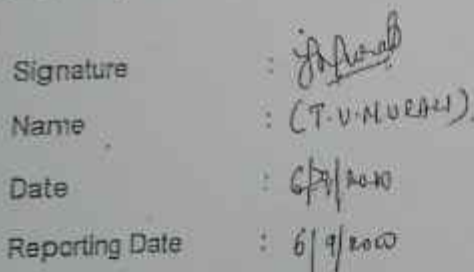 Signature :
Name : (T.V.MURALI)
Date : 6/9/2010
Reporting Date : 6/9/2010